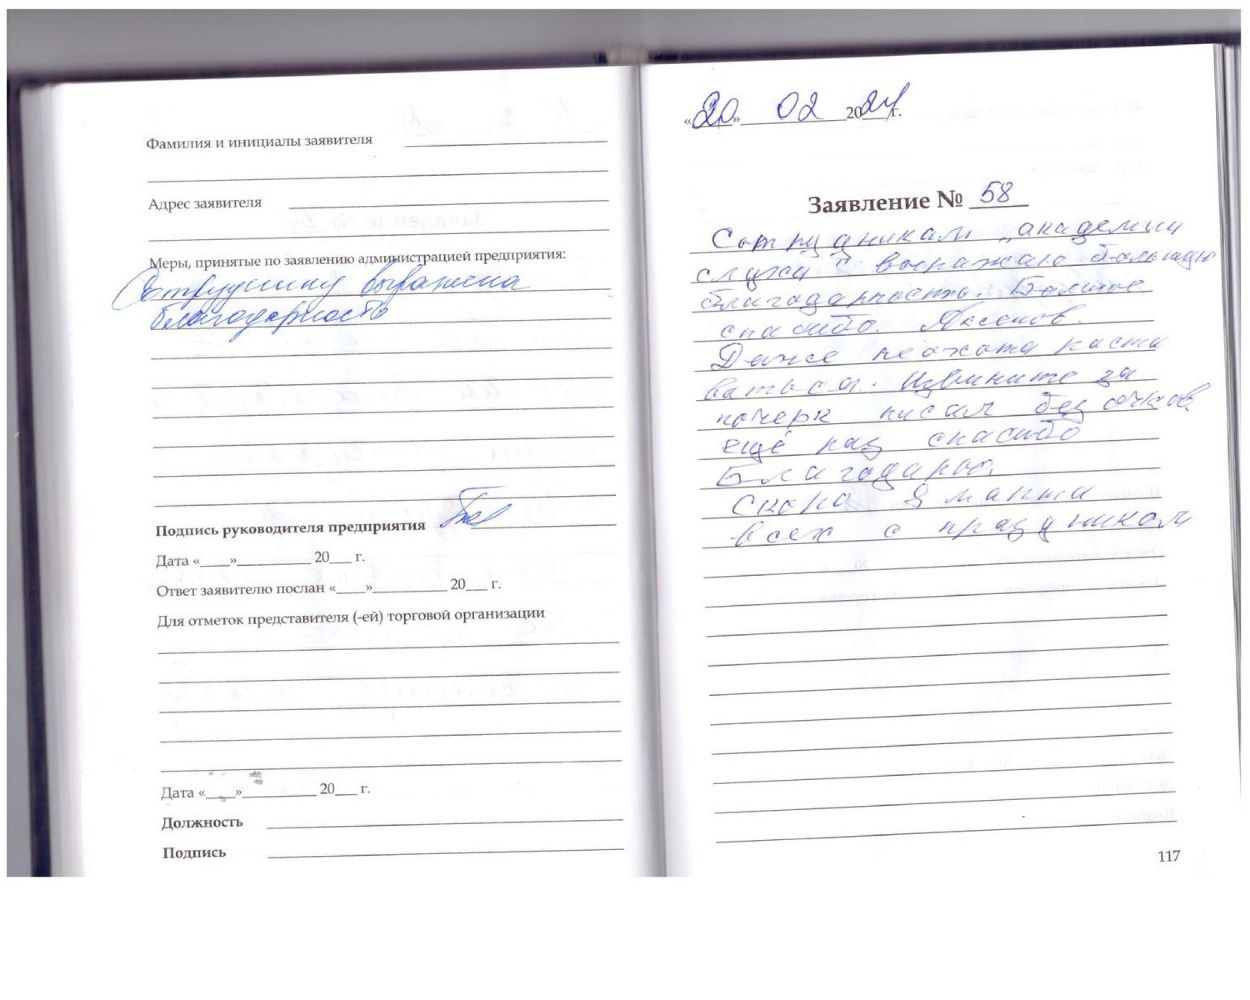 Фамилия и инициалы заявителя
Адрес заявителя
Меры, принятые по заявлению администрацией предприятия:
Сотруднику выражена
благодарность
Подпись руководителя предприятия
Дата «____»__________ 20___ г.
Ответ заявителю послан «____»__________ 20___ г.
Для отметок представителя (-ей) торговой организации
Дата «____»__________ 20___ г.
Должность
Подпись
«20» 02 2024 г.
Заявление № 58
Сотрудникам „академии
слуха" выражаю большую
благодарность. Большое
спасибо. Аксенов.
Даже неохота расста
ваться. Извините за
почерк писал без очков.
ещё раз спасибо
Благодарю.
Скоро 8 марта
всех с праздником
117